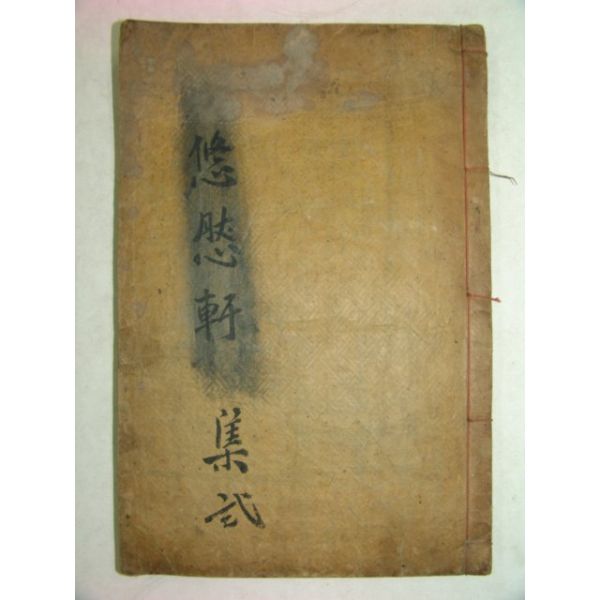 悠然軒集弍